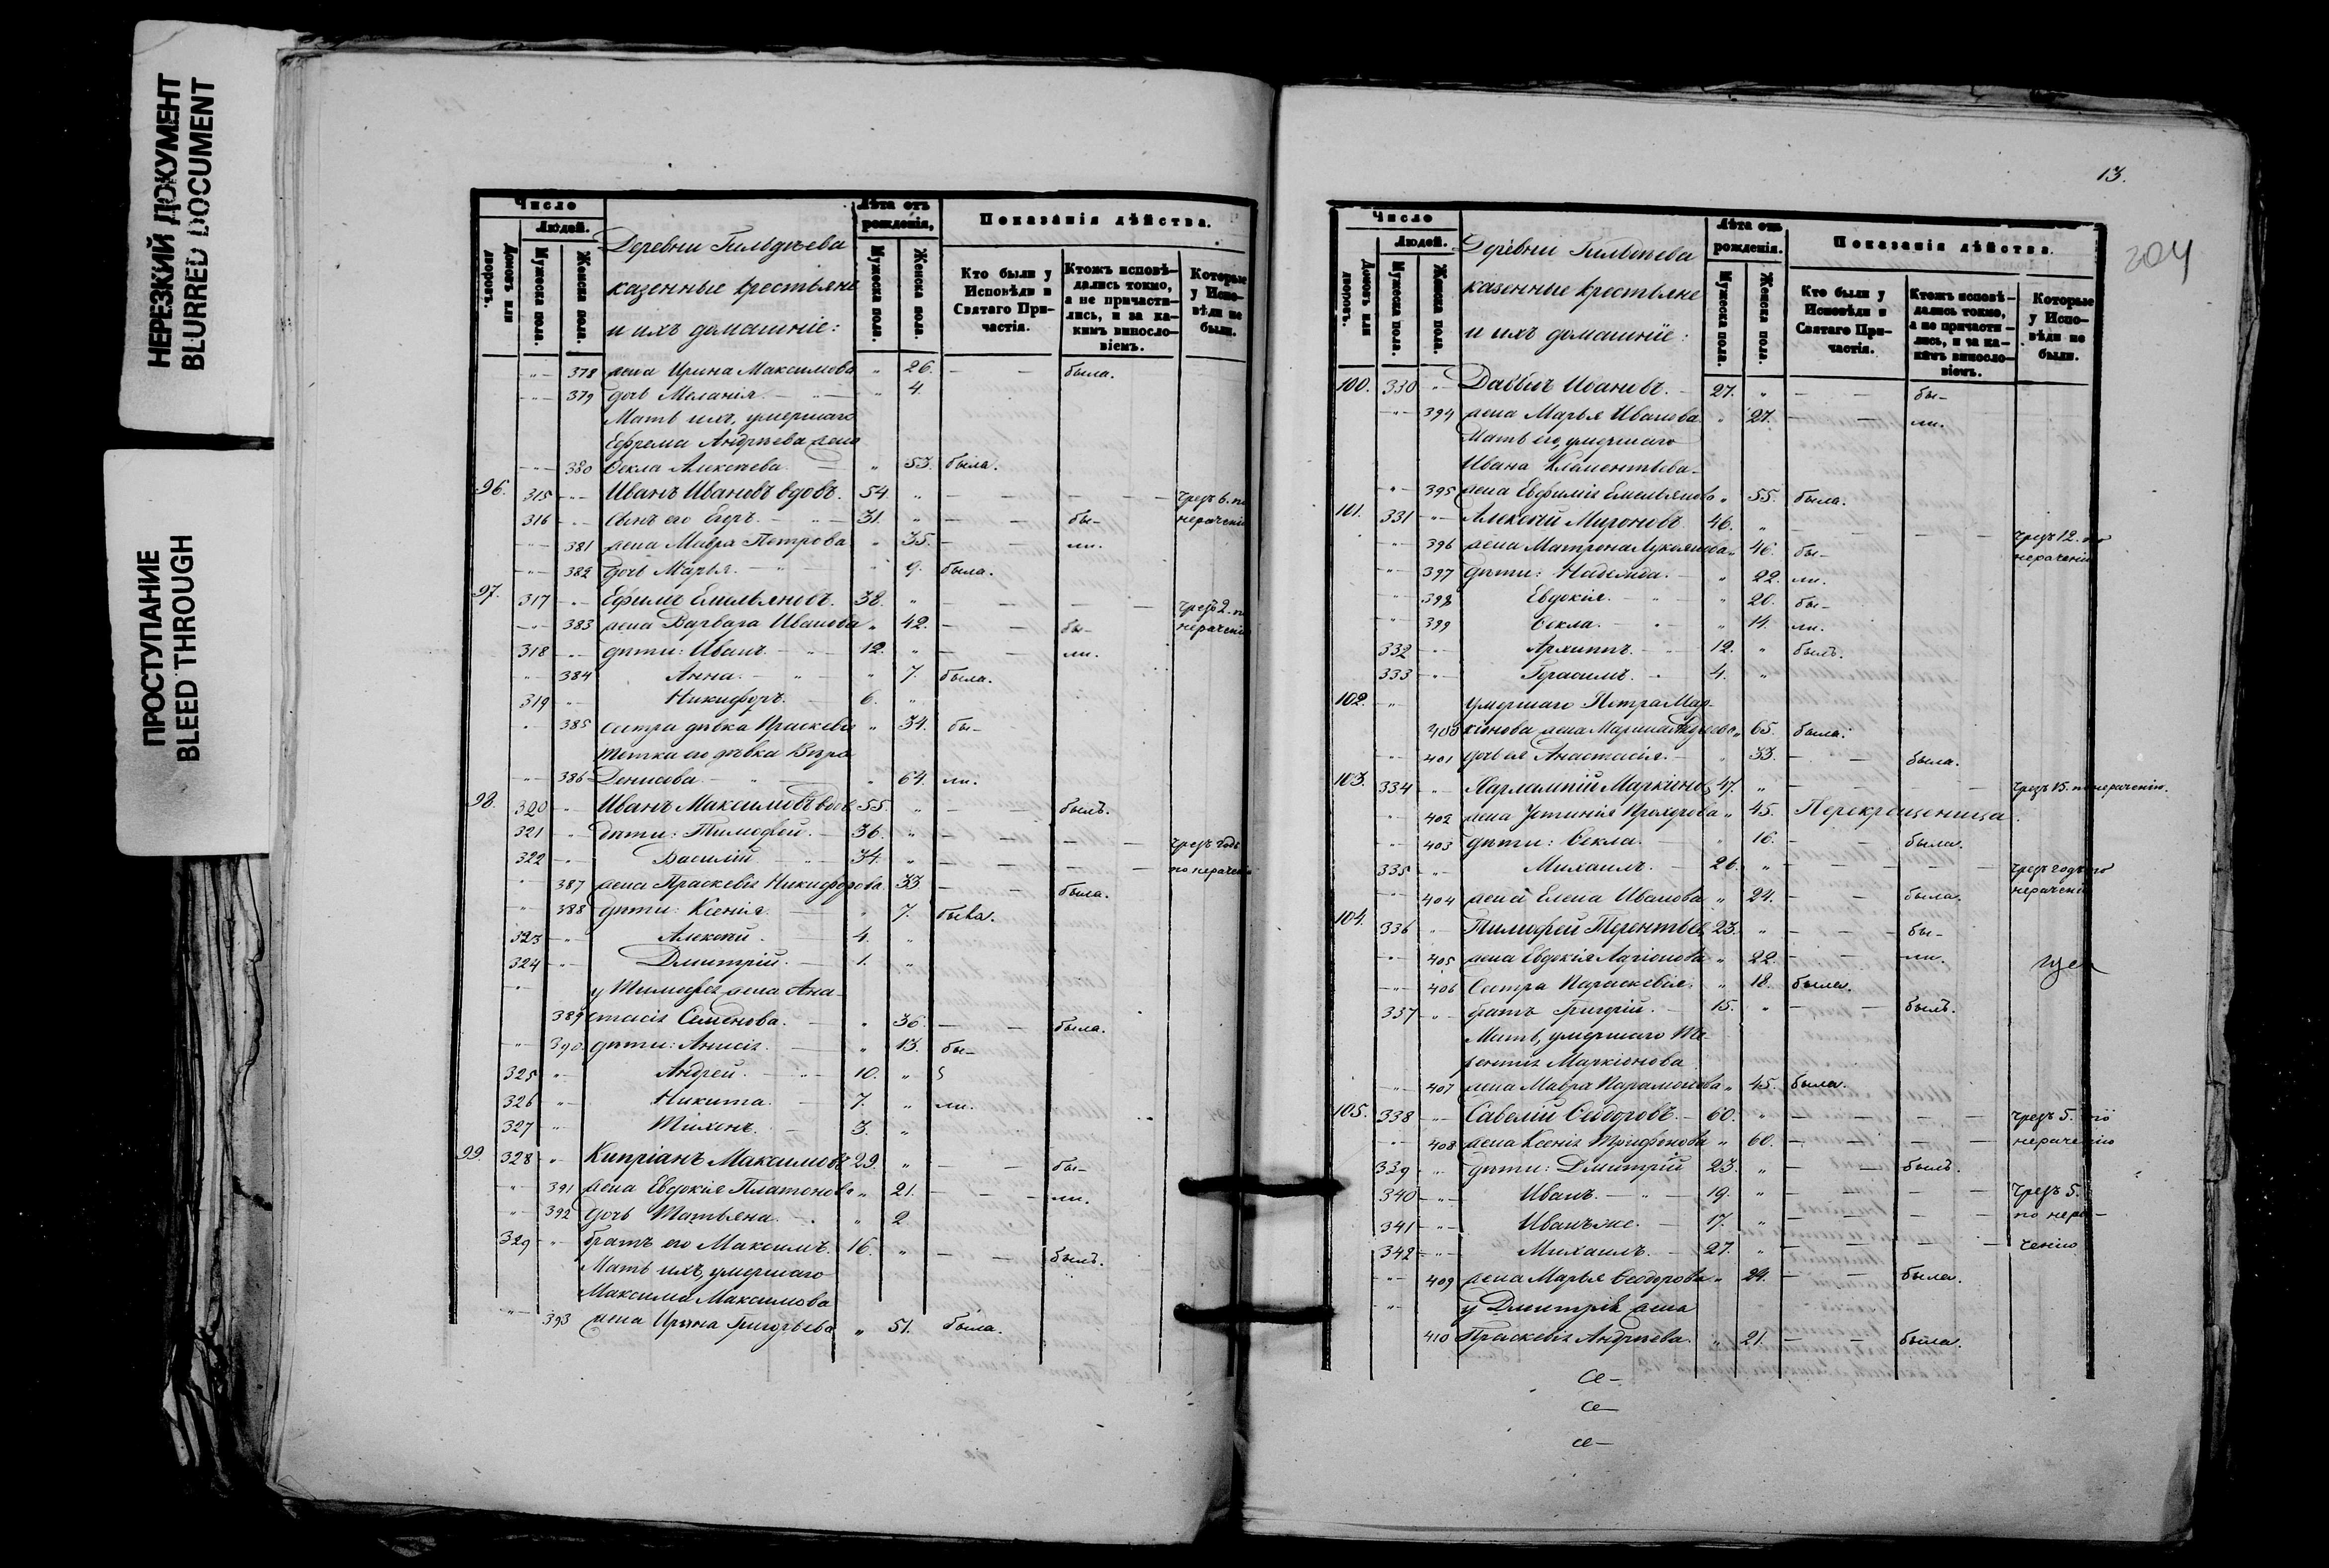 НЕРЕЗКИЙ ДОКУМЕНТ
BLURRED DOCUMENT
ПРОСТУПАНИЕ
BLEED THROUGH
Число
Людей.
Домовъ или дворовъ.
Мужеска пола.
Женска пола.
Деревни Гильдѣева
казенные крестьяне
и ихъ домашніе:
Лѣта отъ рожденія.
Мужеска пола.
Женска пола.
Показанія дѣйства.
Кто были у Исповѣди и Святаго Причастія.
Ктожъ исповѣдались токмо, а не причастились, и за какимъ винословіемъ.
Которые у Исповѣди не были.
378 жена Ирина Максимова " 26. — — была.
379 дочь Меланія. " 4.
Мать ихъ, умершаго
Ефрема Андрѣева жена
380 Ѳекла Алексѣева. " 53. была.
96. 315 Иванъ Ивановъ вдовъ. 54. " — — — — чрезъ 6. по
316 Сынъ его Егоръ. 31. " — — бы- нерачені
381 жена Мавра Петрова " 35. — — ли.
382 дочь Марья. " 9. была.
97. 317 Ефимъ Емельяновъ. 38. " — — — — чрезъ 2. по
383 жена Варвара Иванова " 42. — — бы- нерачені
318 дѣти: Иванъ. 12. " — — ли.
384 Анна. " 7. была.
319 Никифоръ. 6. "
385 сестра дѣвка Праскевія " 34. бы-
Тетка его дѣвка Вѣра
386 Денисова. " 64. ли.
98. 320 Иванъ Максимовъ вдов. 55. " — — былъ.
321 дѣти: Тимофей. 36. " — — — — чрезъ годъ
322 Василій. 34. " — — — — по нерачені
387 жена Праскевія Никифорова. 33 — — была.
388 дѣти: Ксенія. " 7. была.
323 Алексѣй. 4. "
324 Дмитрій. 1. "
у Тимофея жена Ана-
389 стасія Семенова. " 36. — — была.
390. дѣти: Анисія. " 13. бы-
325 Андрей. 10. "
326 Никита. 7. " ли.
327 Тихонъ. 3. "
99. 328 Кипріанъ Максимовъ 29. " — — бы-
391 жена Евдокія Платонова " 21. — — ли.
392 дочь Татьяна. " 2
329 братъ его Максимъ. 16. " — — былъ.
Мать ихъ, умершаго
Максима Максимова
393 жена Ирина Григорьева " 51. была.
13.
204
Число
Людей.
Домовъ или дворовъ.
Мужеска пола.
Женска пола.
Деревни Гильдѣева
казенные крестьяне
и ихъ домашніе:
Лѣта отъ рожденія.
Мужеска пола.
Женска пола.
Показанія дѣйства.
Кто были у Исповѣди и Святаго Причастія.
Ктожъ исповѣдались токмо, а не причастились, и за какимъ винословіемъ.
Которые у Исповѣди не были.
100. 330 Давыдъ Ивановъ. 27. " — — бы-
394 жена Марья Иванова " 27. — — ли.
Мать его, умершаго
Ивана Клементьева
395 жена Евфимія Емельянова " 55. была.
101. 331 Алексѣй Мироновъ. 46. " — — — — чрезъ 12. по
396 жена Матрона Лукоянова " 46. бы- нерачені
397 дѣти: Надежда. " 22. ли.
398 Евдокія. " 20. бы-
399 Ѳекла. " 14. ли.
332 Архиппъ. 12. " былъ.
333 Герасимъ. 4. "
102. Умершаго Петра Мар-
400 кіонова жена Марина Андреева " 65. была.
401 дочь ея Анастасія. " 33. — — была.
103. 334 Харлампій Маркіоновъ 47. " — — — — чрезъ 15. по нераченію.
402 жена Устинія Прохорова " 45. Перекрещеница.
403 дѣти: Ѳекла. " 16. — — была.
335 Михаилъ. 26. " — — — — чрезъ годъ по
404 жена Елена Иванова " 24. — — была. нерачені
104. 336 Тимофей Терентьев. 23. " — — бы-
405 жена Евдокія Ларіонова " 22. — — ли.
406 Сестра Параскевія. " 18. была.
337 братъ Григорій. 15. " — — былъ.
Мать, умершаго Те-
рентія Маркіонова
407 жена Мавра Парамонова " 45. была.
105. 338 Савелій Ѳедоровъ. 60. " — — — — чрезъ 5. по
408 жена Ксенія Трифонова " 60. — — — — нераченію
339 дѣти: Дмитрій 23. " — — былъ.
340 Иванъ. 19. " — — — — чрезъ 5.
341 Иванъ же. 17. " — — — — по нера-
342 Михаилъ. 27. " — — — — ченію
409 жена Марья Ѳеодорова " 24. — — была.
у Дмитрія жена
410 Праскевія Андрѣева. " 21. — — была.